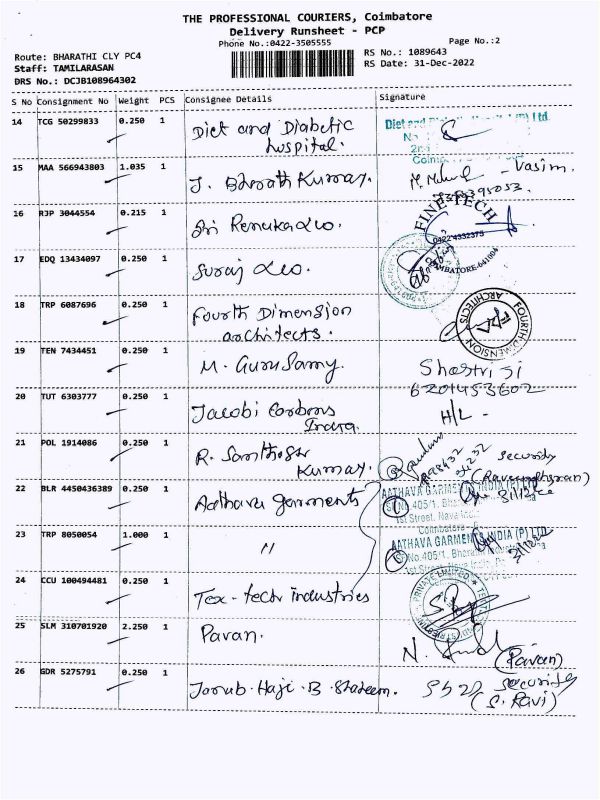 THE PROFESSIONAL COURIERS, Coimbatore
Delivery Runsheet - PCP
Phone No.:0422-3505555
Page No.:2
Route: BHARATHI CLY PC4
RS No.: 1089643
Staff: TAMILARASAN
RS Date: 31-Dec-2022
DRS No.: DCJB108964302
S No Consignment No Weight PCS Consignee Details Signature
14 TCG 50299833 0.250 1 Diet and Diabetic
hospital.
Diet and
15 MAA 566943803 1.035 1 J. Bharath Kumar. - Vasim.
16 RJP 3044554 0.215 1 Sri Renuka &co.
FINE TECH
0422 4332375
COIMBATORE-641004
17 EDQ 13434097 0.250 1 Suraj &co.
18 TRP 6087696 0.250 1 Fourth Dimension
architects.
FOURTH DIMENSION ARCHITECTS
19 TEN 7434451 0.250 1 M. GuruSamy. Shastri Ji
6201453602
20 TUT 6303777 0.250 1 Jacobi Carbons
India H/L -
21 POL 1914086 0.250 1 R. Santhosh
Kumar. security
22 BLR 4450436389 0.250 1 Aathava garments
AATHAVA GARMENTS INDIA (P) LTD
S.F.No.405/1, Bharathi
1st Street, Nava India
Coimbatore
31/12/22
23 TRP 8050054 1.000 1 "
AATHAVA GARMENTS INDIA (P) LTD
S.F.No.405/1, Bharathi
1st Street, Nava India,
31/12/22
24 CCU 100494481 0.250 1 Tex-tech industries
PRIVATE LIMITED
25 SLM 310701920 2.250 1 Pavan.
(Pavan)
26 GDR 5275791 0.250 1 Janub.Haji.B.Shaleem. security
(S. Ravi)